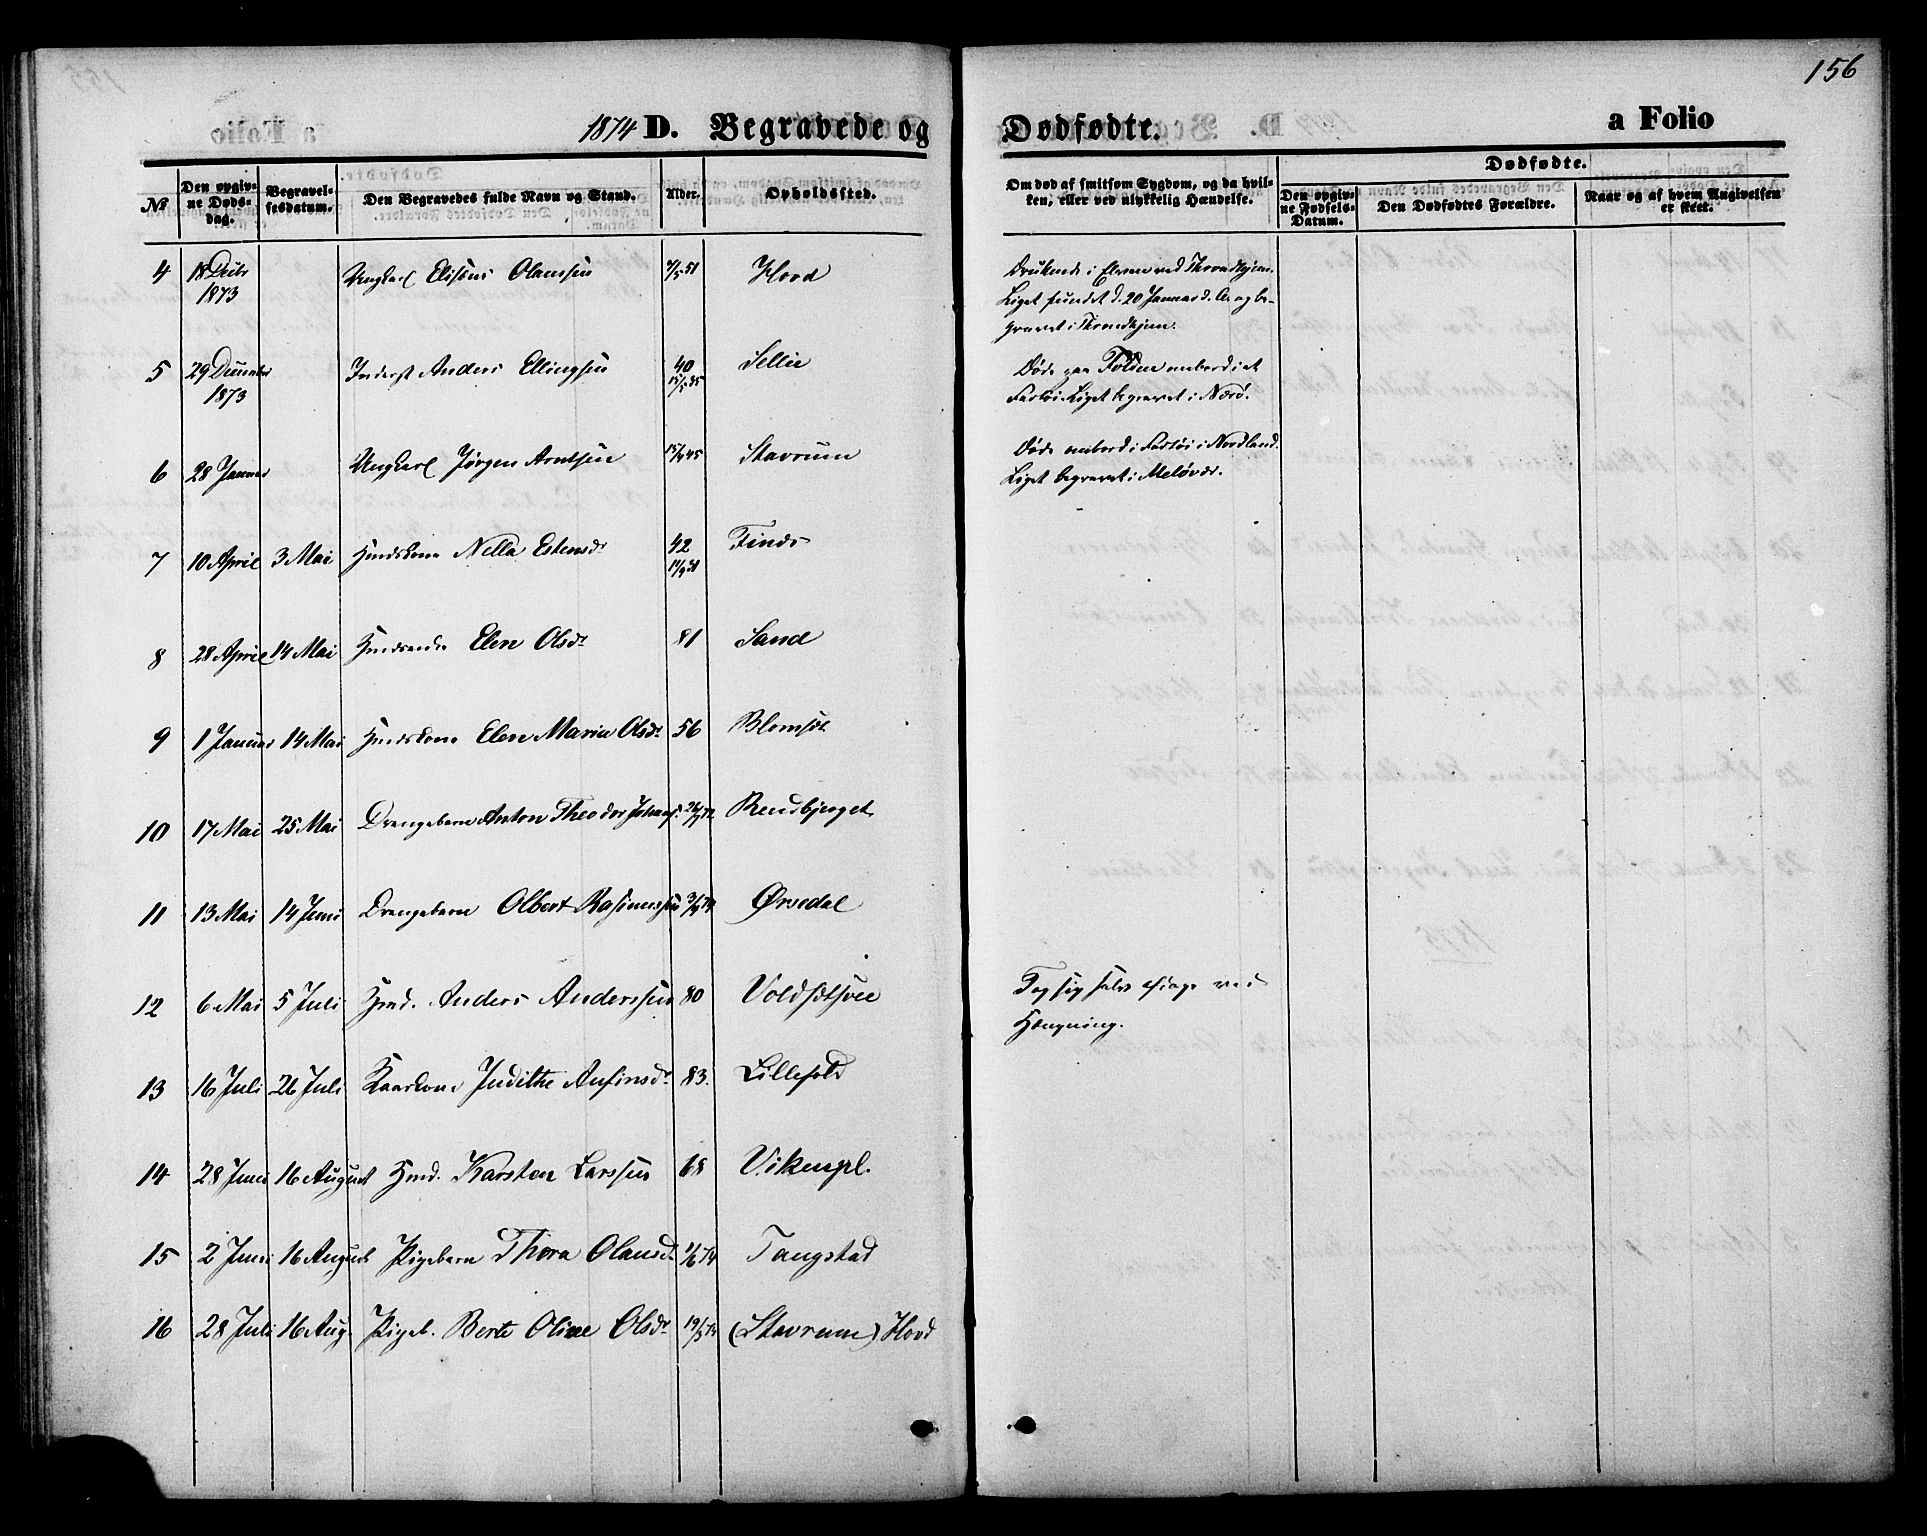 156
1874 D. Begravede og Dødfødte. a Folio
Dødfødte.
No
Den opgivne Dødsdag.
Begravelsesdatum.
Den Begravedes fulde Navn og Stand.
Alder.
Opholdssted.
Om død af smitsom Sygdom, og da hvilken, eller ved ulykkelig Hændelse.
Den opgivne Fødsels-Datum.
Den Dødfødtes Forældre.
Naar og af hvem Angivelsen er skeet.
4 18 Decbr 1873 Ungkarl Olaussen Hovd
Druknede i Elven ved Throndhjem.
Liget fundet d. 20 Januar d. A. og be-
gravet i Throndhjem.
5 29 December 1873 Inderst Anders Ellingsen 40 Sellie
Døde paa Folden ombord i et
Fartøi. Liget begravet i Nærø.
6 28 Januar Ungkarl Jørgen Arntsen 15/4 45 Stavrum
Døde ombord i Fartøi i Nordland.
Liget begravet i Meløvær.
7 10 April 3 Mai Huuskone Nella Estensdr 42
8 28 April 14 Mai Elen Olsdr 81 Sand
9 1 Januar 14 Mai Huuskone Elen Maria Olsdr 56
10 17 Mai 25 Mai Drengebarn Anton Theodor Johans. Rendbjerget
11 13 Mai 14 Juni Drengebarn Olbert Rasmussen Ørsedal
12 6 Mai 5 Juli Huusmd. Anders Anderssen 80
Tog sig selv afdage ved
Hængning.
13 16 Juli 26 Juli Kaarkone Judithe Anfinsdr 83. Lillefold
14 28 Juni 16 August Karsten Larssen 68 Vikenspl.
15 2 Juni 16 August Pigebarn Thora Olausd. 1/6 74 Tangstad
16 28 Juli 16 Aug. Pigeb. Berte Oline Olsdr 19/5 74 (Stavrum) Hovd